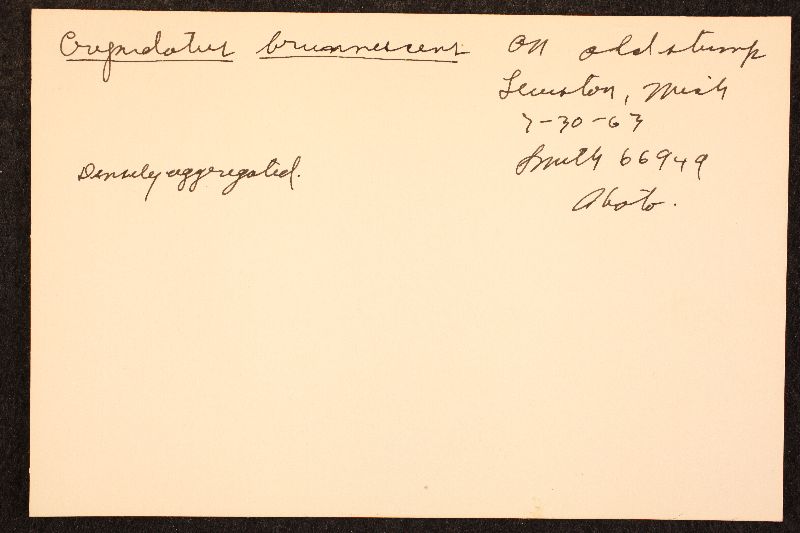 Crepidotus brunnescens
On old stump
Lewiston, Mich
7-30-63
Smith 66949
Photo.
Densely aggregated.